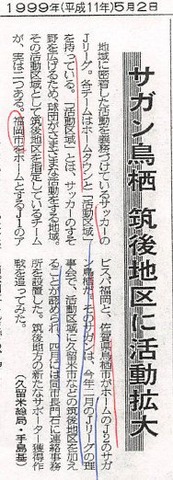 1999年(平成11年)5月2日
サガン鳥栖 筑後地区に活動拡大
地域に密着した活動を義務づけているサッカーの
Jリーグ。各チームはホームタウンと「活動区域」
を持っている。「活動区域」とは、サッカーのすそ
野を広げるため球団がさまざまな活動をする地域。
その活動区域として筑後地区を指定しているチーム
が、実は二つある。福岡市をホームとするJ1のア
ビスパ福岡と、佐賀県鳥栖市がホームのJ2のサガ
ン鳥栖だ。そのサガンは、今年二月のJリーグの理
事会で、活動区域に久留米市などの筑後地区を加え
ることが認められ、四月には同市長門石に連絡事務
所を設置した。筑後地方の新たなサポーター獲得作
戦を追ってみた。
(久留米総局・手島基)